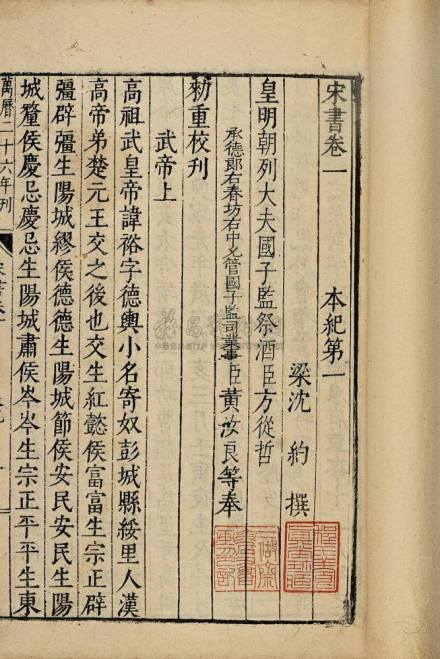 宋書卷一 本紀第一
梁沈約撰
皇明朝列大夫國子監祭酒臣方從哲
承德郎右春坊右中允管國子監司業事臣黃汝良等奉
勑重校刊
武帝上
高祖武皇帝諱裕字德輿小名寄奴彭城縣綏里人漢
高帝弟楚元王交之後也交生紅懿侯富富生宗正辟
彊辟彊生陽城繆侯德德生陽城節侯安民安民生陽
城釐侯慶忌慶忌生陽城肅侯岑岑生宗正平平生東
萬曆二十六年刊